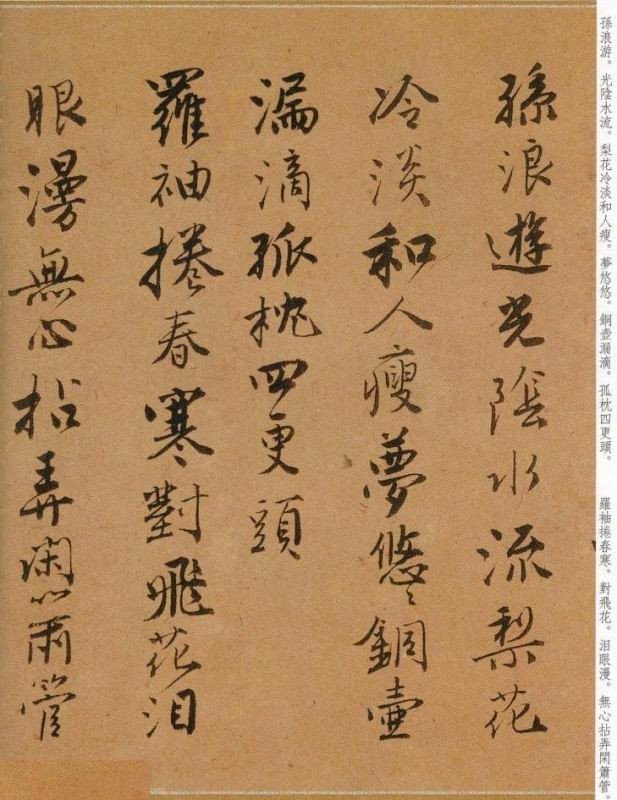 孫浪游。光陰水流。梨花冷淡和人瘦。夢悠悠。銅壺漏滴。孤枕四更頭。　羅袖捲春寒。對飛花。泪眼漫。無心拈弄閑簫管。
孫浪遊光陰水流梨花
冷淡和人瘦夢悠〻銅壺
漏滴孤枕四更頭
羅袖捲春寒對飛花泪
眼漫無心拈弄閑簫管
.com